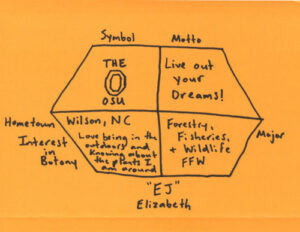 Symbol
Motto
THE
O
OSU
Live out
your
Dreams!
Hometown
Wilson, NC
Interest
in
Botony
Love being in the
outdoors and
knowing about
the plants I
am around
Forestry,
Fisheries,
+ Wildlife
FFW
Major
"EJ"
Elizabeth